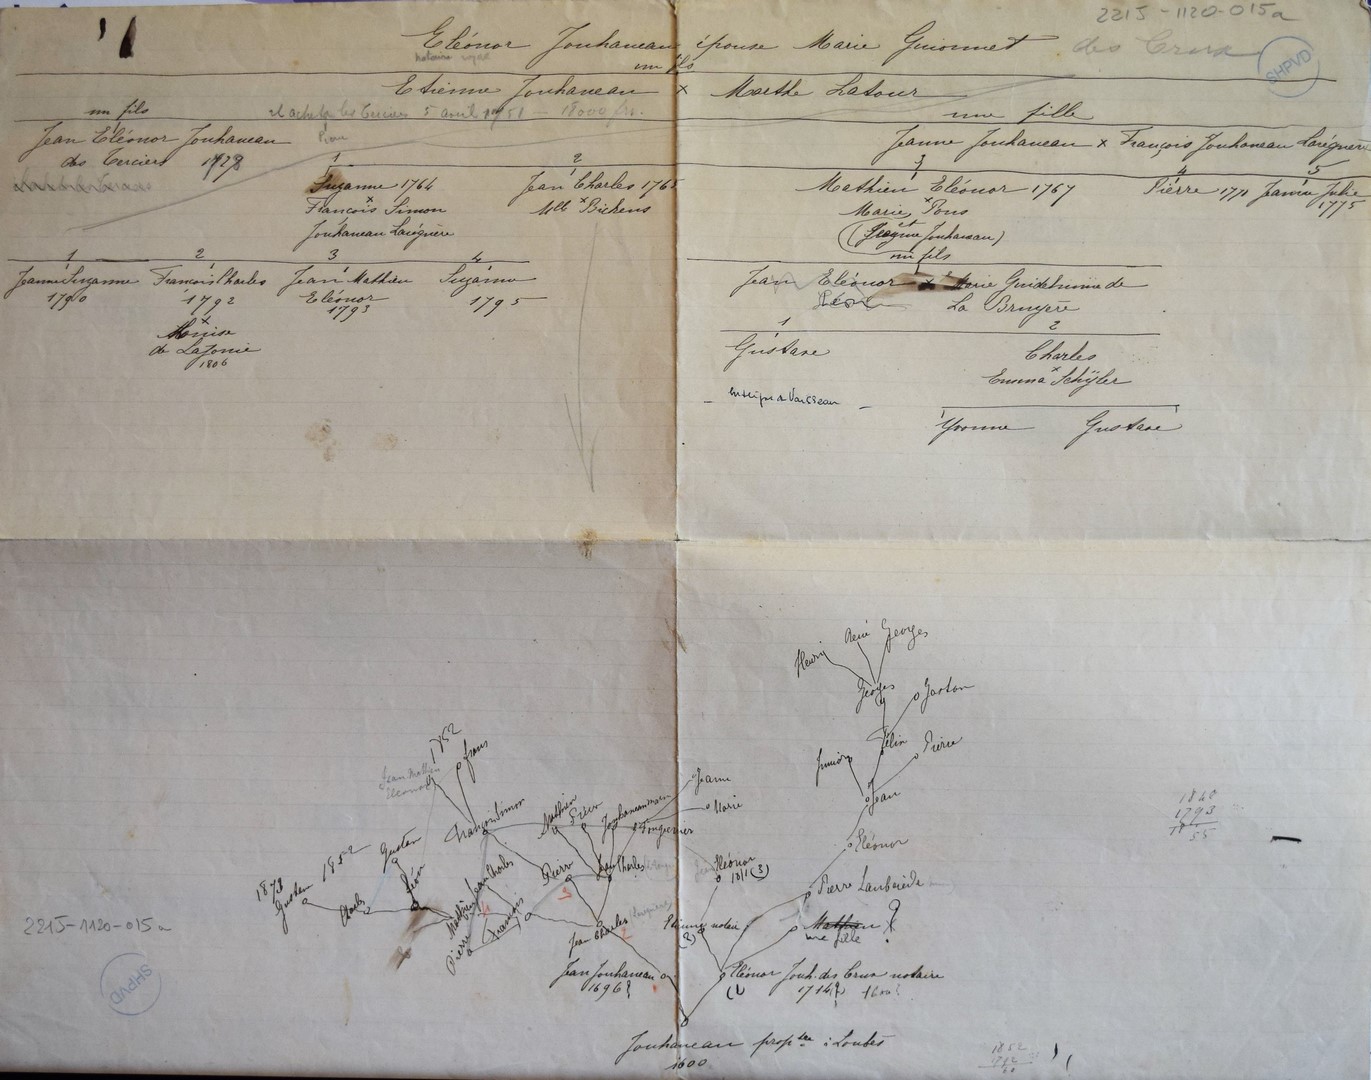 2215-1120-015a
SHPVD
Eléonor Jouhaneau épouse Marie Guionnet des Crux
un fils
Etienne Jouhaneau x Marthe Latour
un fils
il acheta les Terciers 5 avril 1751 - 18000 frs.
une fille
Jean Eléonor Jouhaneau
des Terciers 1728
Jeanne Jouhaneau x François Jouhaneau Laregnère
1 2 3 4 5
Suzanne 1764
x
François Simon
Jouhaneau Laregnère
Jean Charles 1765
x
Mlle Bickens
Mathieu Eléonor 1767
x
Marie Pons
Jouhaneau)
un fils
Pierre 1771
Jeanne Julie
1775
1 2 3 4
Jeanne Suzanne
1790
François Charles
1792
x
de Lajonie
1806
Jean Mathieu
Eléonor
1793
Suzanne
1795
Jean Eléonor x Marie Guidelmine de
La Bruyère
1 2
Gustave
enseigne de Vaisseau
Charles
x
Emma Schÿler
Yvonne Gustave
Henry René Georges
Georges
Gaston
Félix
Junior
Pierre
Jean
Eléonor
Pierre Laubarède
Mathieu ?
une fille
1752
frans
Jean Mathieu
Eléonor
François Simon
Mathieu
Jeanne
Marie
Fougerrier
Eléonor
(3)
Gustave
1852
1878
Gustave
Charles
Léon
Mathieu
Jean Charles
Pierre
François
Pierre
Jean Charles
Jean Charles
2
Etienne notaire
(2)
Jean Jouhaneau
1696?
Eléonor Jouh. des Crux notaire
(1
1714? 1600?
Jouhaneau propre à Loubès
1600
1840
1793
55
1852
2215-1120-015a
SHPVD